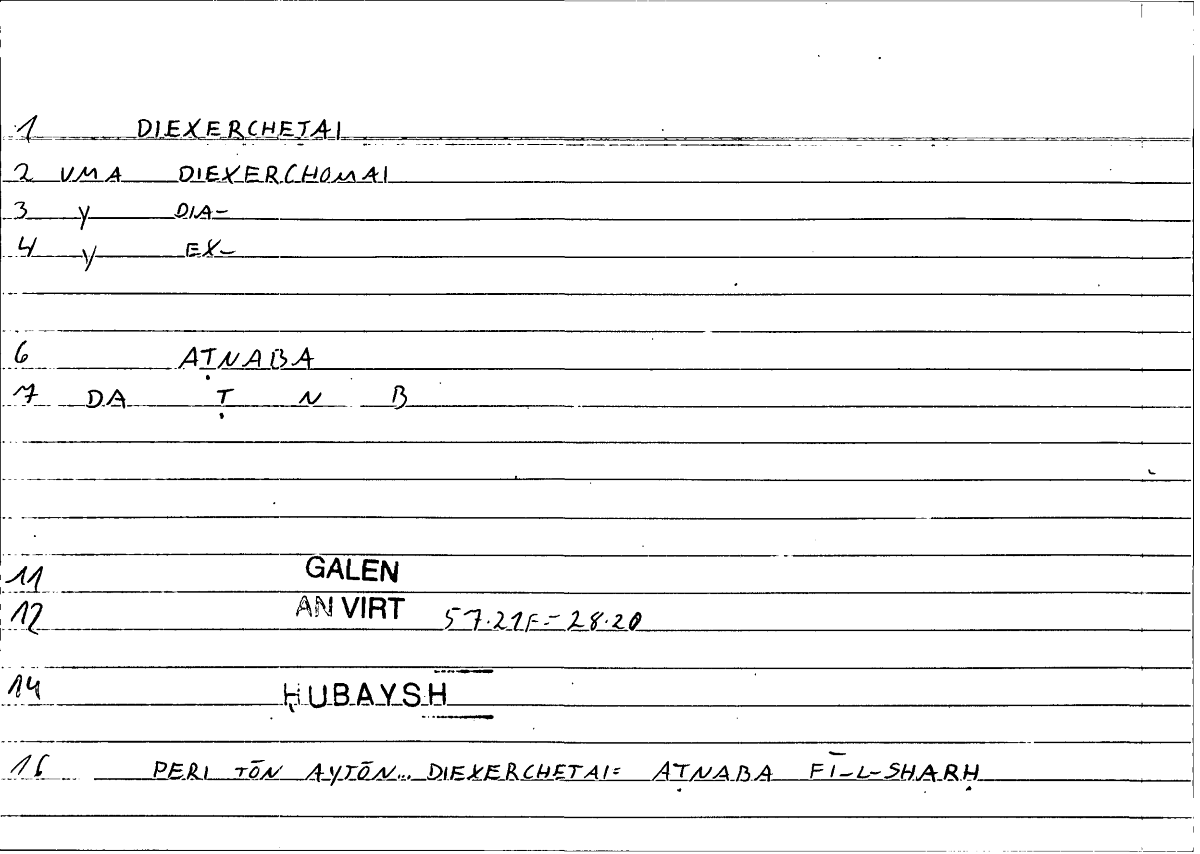 1 DIEXERCHETAI
2 VMA DIEXERCHOMAI
3 y DIA-
4 y EX-
6 AṬNABA
7 DA Ṭ N B
11 GALEN
12 AN VIRT 57.21F.= 28.20
14 ḤUBAYSH
16 PERI TŌN AYTŌN... DIEXERCHETAI= AṬNABA FĪ-L-SHARḤ